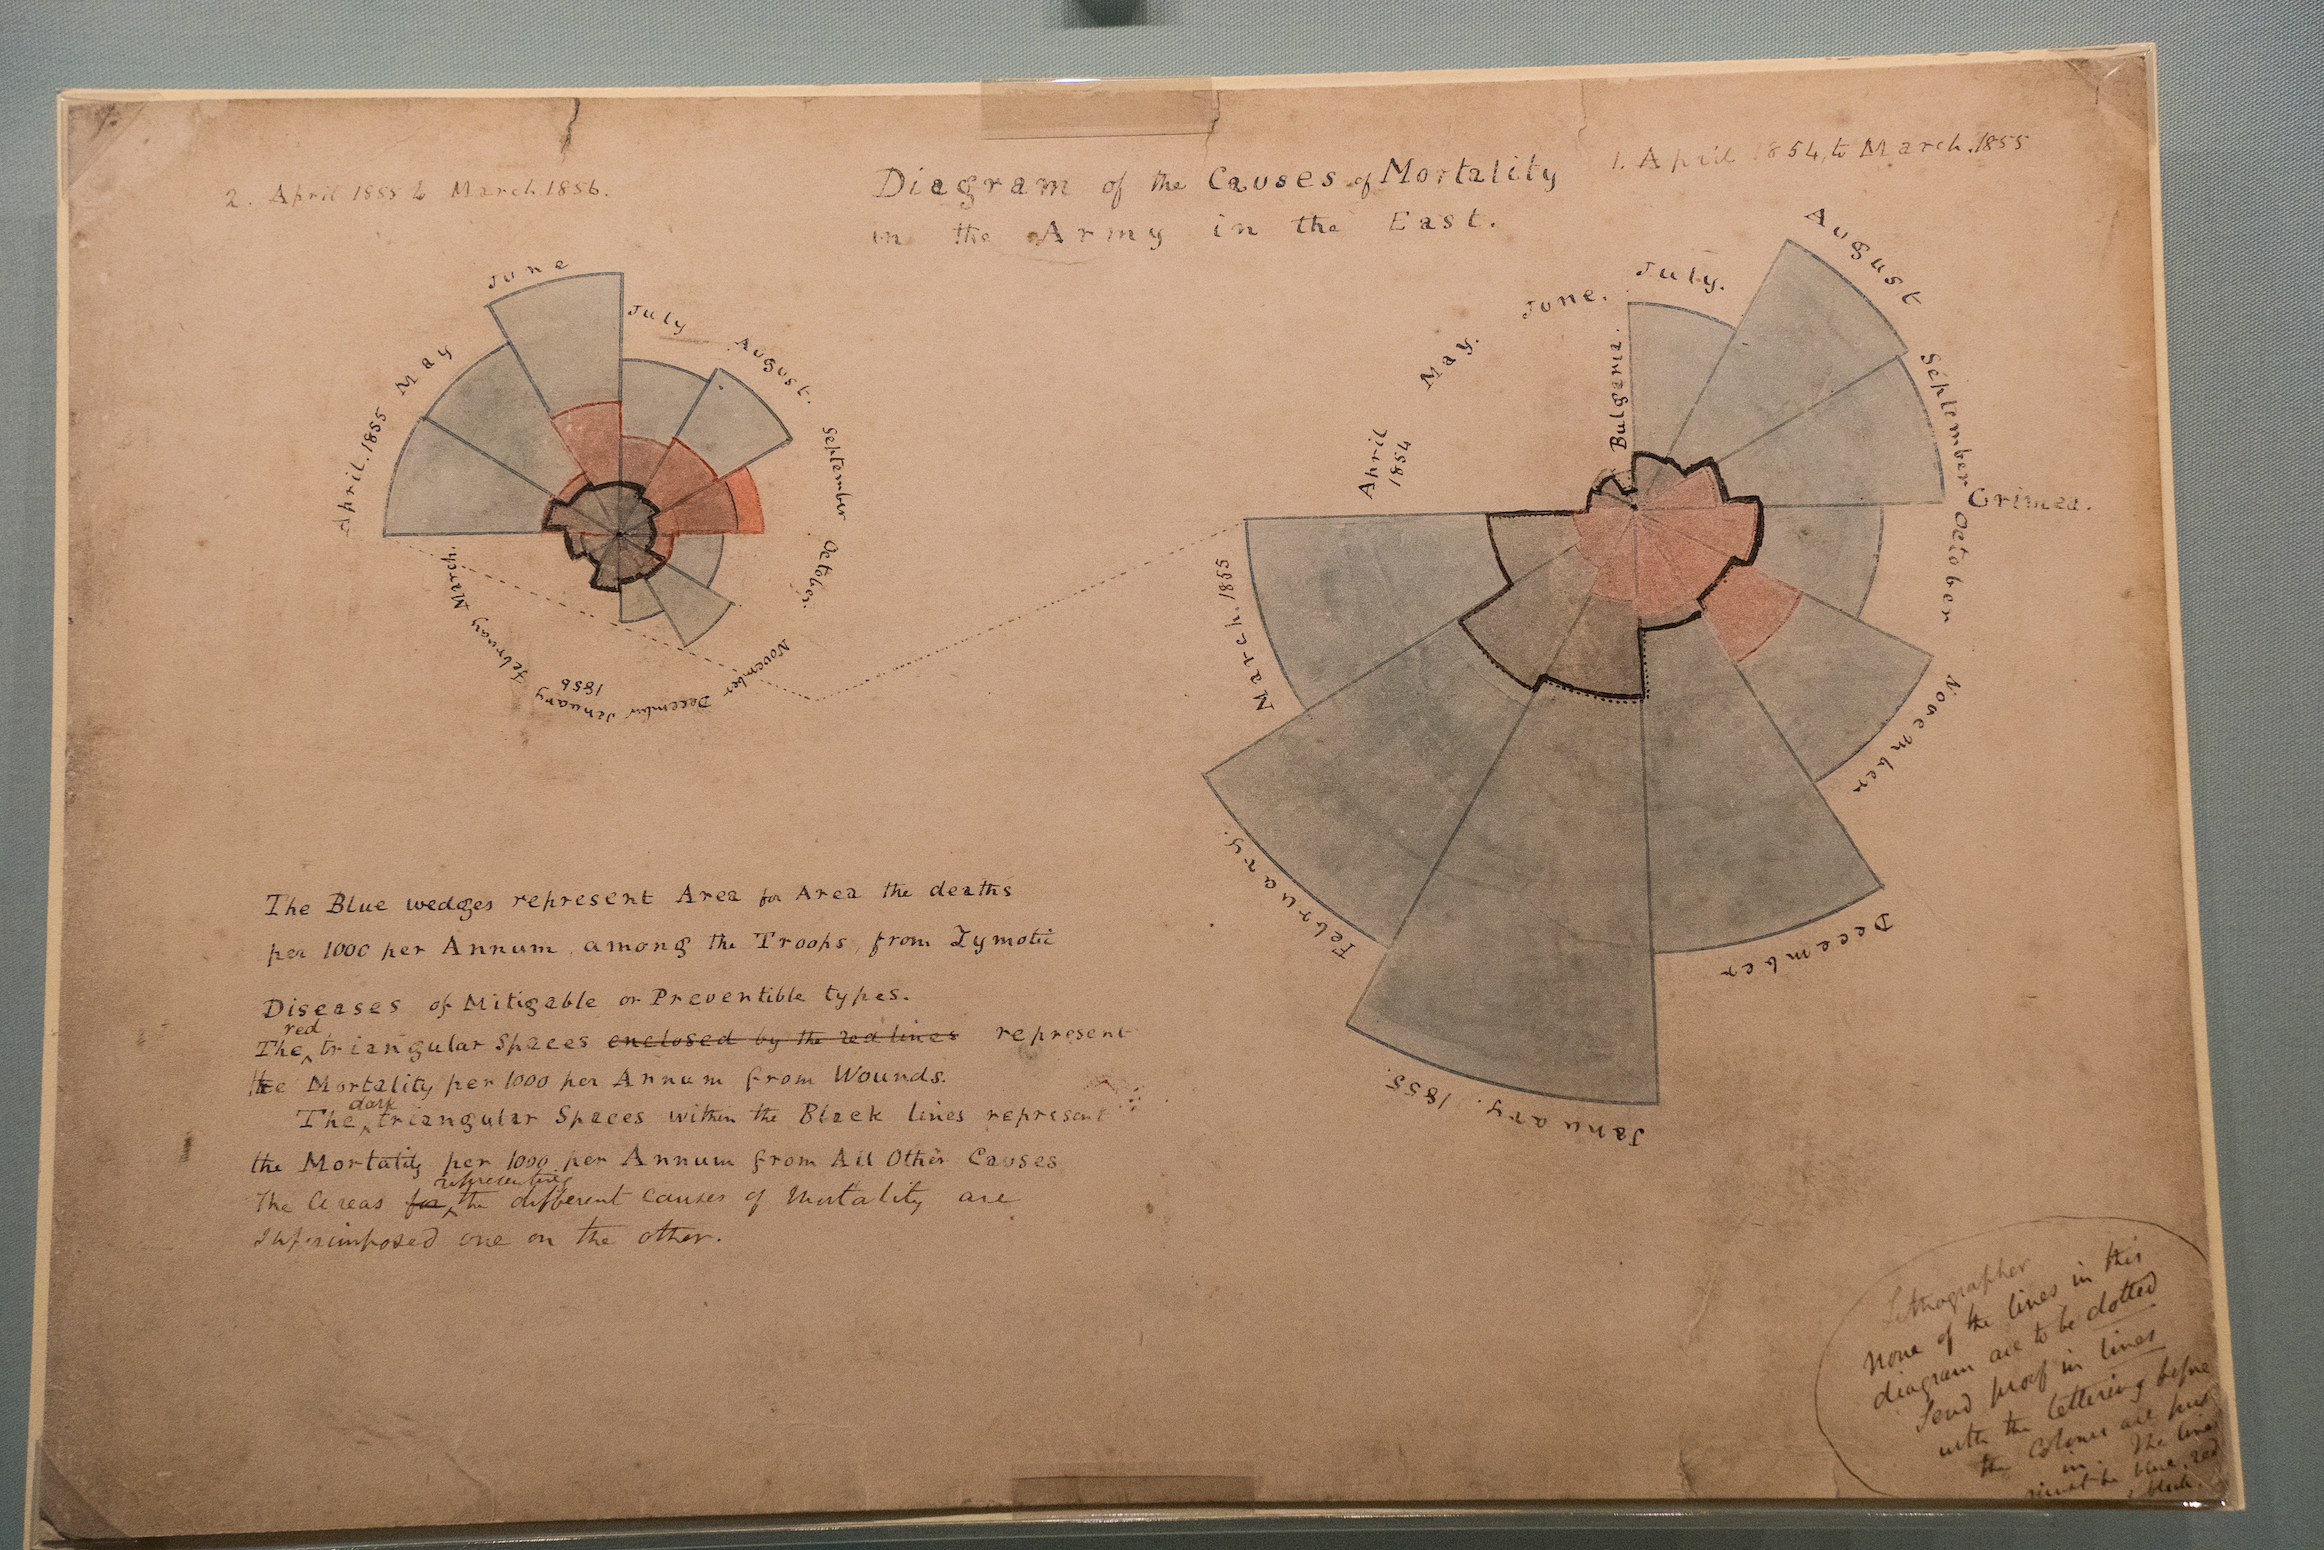 2. April 1855 to March 1856.
Diagram of the Causes of Mortality
in the Army in the East.
1. April 1854, to March. 1855
April. 1855
May
June
July
August.
September
October.
November
December
January
1856
February
March.
April
1854
May.
June.
July.
August
September
October
November
December
January. 1855.
February.
March. 1855
Bulgaria.
Crimea.
The Blue wedges represent Area for Area the deaths
per 1000 per Annum, among the Troops, from Zymotic
Diseases of Mitigable or Preventible types.
red
The triangular Spaces enclosed by the red lines represent
the Mortality per 1000 per Annum from Wounds.
dark
The triangular Spaces within the Black lines represent
the Mortality per 1000 per Annum from All Other Causes
representing
The Areas for the different causes of Mortality are
superimposed one on the other.
Lithographer
None of the lines in this
diagram are to be dotted
Send proof in lines
with the lettering before
the Colours are put
in. The lines
must be blue, red
& black.